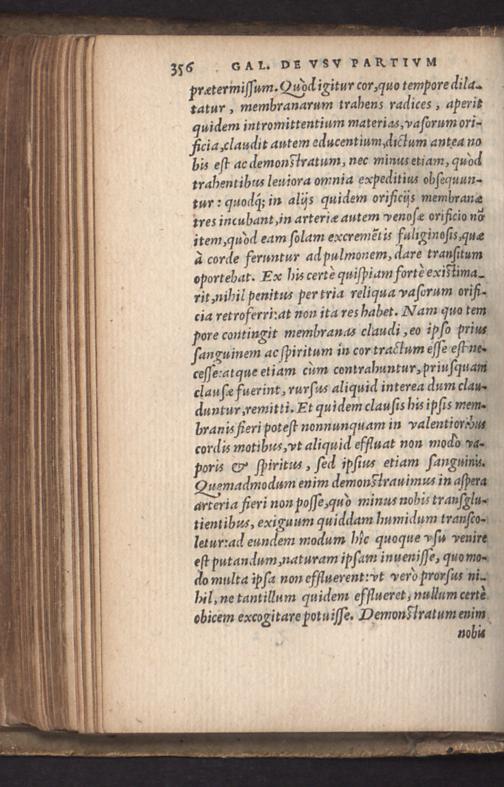 356 GAL. DE VSV PARTIVM
prætermissum. Quòd igitur cor, quo tempore dila-
tatur, membranarum trahens radices, aperit
quidem intromittentium materias, vasorum ori-
ficia, claudit autem educentium, dictum antea no
bis est ac demonstratum, nec minus etiam, quòd
trahentibus leuiora omnia expeditius obsequun-
tur: quodq́; in alijs quidem orificijs membranæ
tres incubant, in arteriæ autem venosæ orificio nō
item, quòd eam solam excremētis fuliginosis, quæ
à corde feruntur ad pulmonem, dare transitum
oportebat. Ex his certè quispiam fortè existima-
rit, nihil penitus per tria reliqua vasorum orifi-
cia retroferri: at non ita res habet. Nam quo tem
pore contingit membranas claudi, eo ipso prius
sanguinem ac spiritum in cor tractum esse est ne-
cesse: atque etiam cùm contrahuntur, priusquam
clausæ fuerint, rursus aliquid interea dum clau-
duntur, remitti. Et quidem clausis his ipsis mem-
branis fieri potest nonnunquam in valentioribus
cordis motibus, vt aliquid effluat non modò va-
poris & spiritus, sed ipsius etiam sanguinis.
Quemadmodum enim demonstrauimus in aspera
arteria fieri non posse, quò minus nobis transglu-
tientibus, exiguum quiddam humidum transco-
letur: ad eundem modum hîc quoque vsu venire
est putandum, naturam ipsam inuenisse, quo mo-
do multa ipsa non effluerent: vt verò prorsus ni-
hil, ne tantillum quidem efflueret, nullum certè
obicem excogitare potuisse. Demonstratum enim
nobis